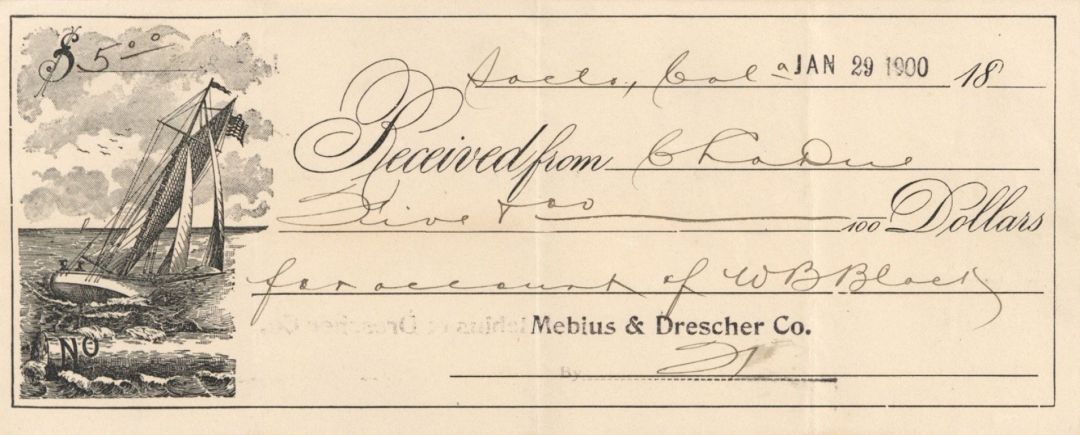 $ 5 00
Sacto, Cal a JAN 29 1900 18
Received from Chas Due
Five & 00 100 Dollars
for account of W B Black
Mebius & Drescher Co.
By
No